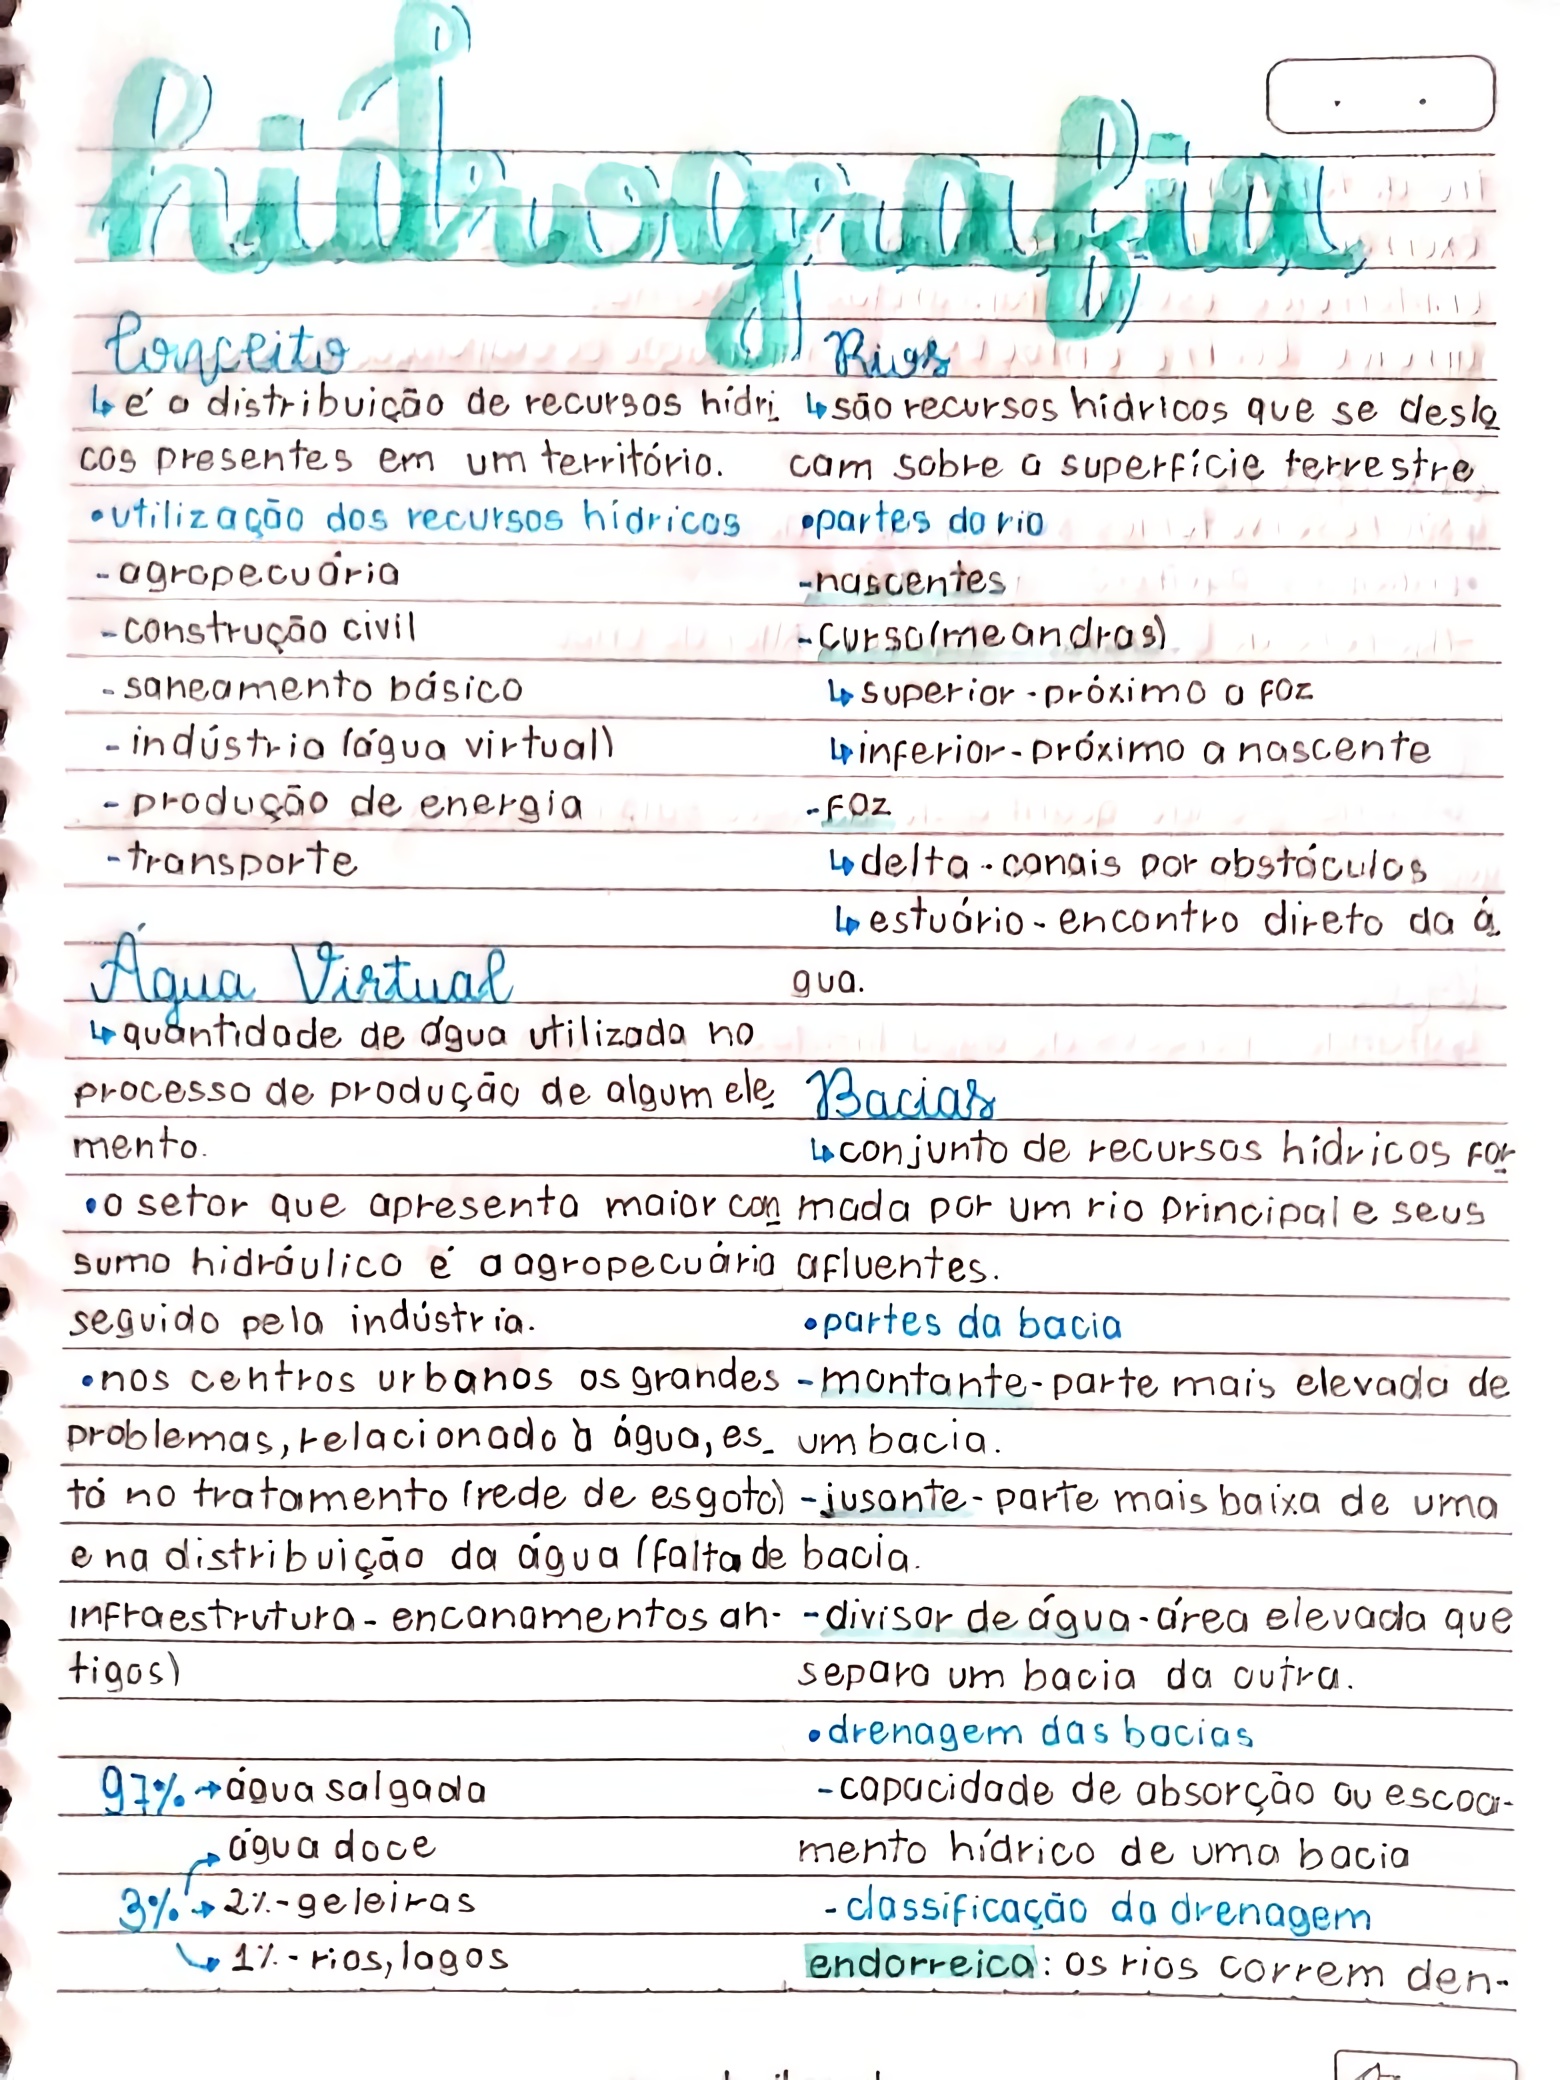 hidrografia
Conceito
↳ é a distribuição de recursos hídri
cos presentes em um território.
•utilização dos recursos hídricos
-agropecuária
-construção civil
-saneamento básico
-indústria (água virtual)
-produção de energia
-transporte
Água Virtual
↳quantidade de água utilizada no
processo de produção de algum ele
mento.
•o setor que apresenta maior con
sumo hidráulico é a agropecuária
seguido pela indústria.
•nos centros urbanos os grandes
problemas, relacionado à água, es_
tá no tratamento (rede de esgoto)
e na distribuição da água (falta de
infraestrutura - encanamentos an-
tigos)
97% → água salgada
água doce
3% → 2% - geleiras
1% - rios, lagos
Rios
↳são recursos hídricos que se deslo
cam sobre a superfície terrestre
•partes do rio
-nascentes
-curso(meandros)
↳superior - próximo a foz
↳inferior - próximo a nascente
-foz
↳delta - canais por obstáculos
↳estuário - encontro direto da á
gua.
Bacias
↳conjunto de recursos hídricos for
mada por um rio principal e seus
afluentes.
•partes da bacia
-montante - parte mais elevada de
um bacia.
-jusante - parte mais baixa de uma
bacia.
-divisor de água - área elevada que
separa um bacia da outra.
•drenagem das bacias
-capacidade de absorção ou escoa-
mento hídrico de uma bacia
-classificação da drenagem
endorreica: os rios correm den-